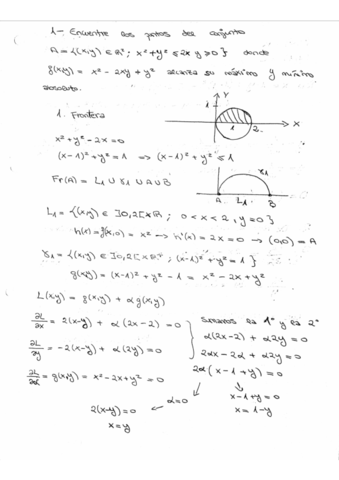 1- Encuentre los ptos del conjunto
A = {(x,y) ∈ R²; x²+y² ≤ 2x y ≥ 0} donde
f(x,y) = x² - 2xy + y² alcanza su máximo y mínimo
absoluto.
Y
1
1 2
X
1. Frontera
x² + y² - 2x = 0
(x-1)² + y² = 1 => (x-1)² + y² ≤ 1
γ1
A L1 B
Fr(A) = L1 ∪ γ1 ∪ A ∪ B
L1 = {(x,y) ∈ ]0,2[ x R ; 0 < x < 2, y = 0}
h(x) = f(x,0) = x² → h'(x) = 2x = 0 → (0,0) = A
γ1 = {(x,y) ∈ ]0,2[ x R⁺ ; (x-1)² + y² = 1}
g(x,y) = (x-1)² + y² - 1 = x² - 2x + y²
L(x,y) = f(x,y) + α g(x,y)
∂L/∂x = 2(x-y) + α(2x-2) = 0
∂L/∂y = -2(x-y) + α(2y) = 0
∂L/∂α = g(x,y) = x² - 2x + y² = 0
Sumamos la 1ª y la 2ª
α(2x-2) + α2y = 0
2αx - 2α + α2y = 0
2α(x-1+y) = 0
α=0
2(x-y) = 0
x = y
x-1+y = 0
x = 1-y